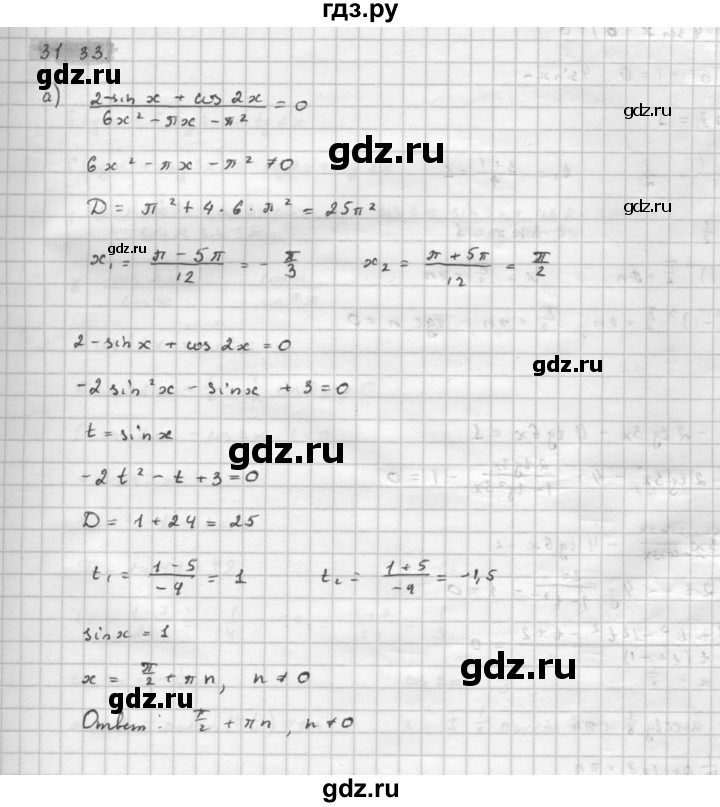 гдз.ру
31. 33.
gdz.ru
а) (2 - sin x + cos 2x)/(6x² - πx - π²) = 0
gdz.ru
gdz.ru
6x² - πx - π² ≠ 0
gdz.ru
D = π² + 4 · 6 · π² = 25π²
gdz.ru
x₁ = (π - 5π)/12 = - π/3    x₂ = (π + 5π)/12 = π/2
2 - sin x + cos 2x = 0
gdz.ru
-2 sin²x - sin x + 3 = 0
t = sin x
gdz.ru
-2t² - t + 3 = 0
D = 1 + 24 = 25
t₁ = (1 - 5)/(-4) = 1    t₂ = (1 + 5)/(-4) = -1,5
sin x = 1
x = π/2 + πn, n ≠ 0
gdz.ru
gdz.ru
Ответ: π/2 + πn, n ≠ 0
gdz.ru